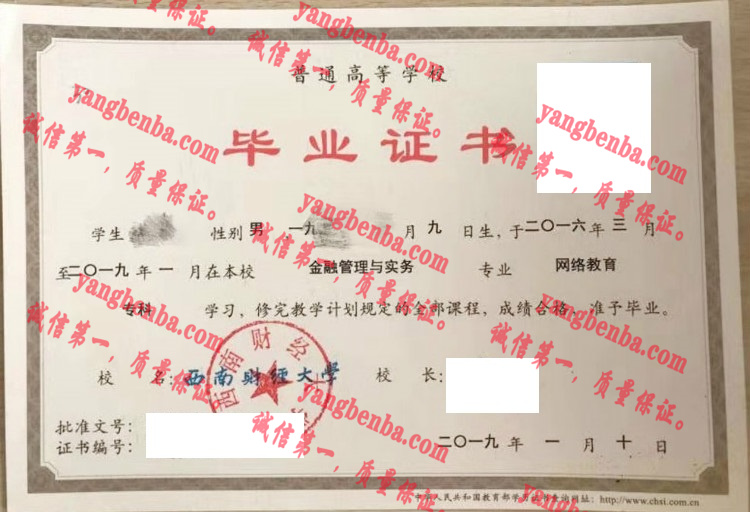 普通高等学校
毕业证书
学生 性别 男 一九 月 九 日生，于二〇一六年 三 月
至二〇一九年 一 月在本校 金融管理与实务 专业 网络教育
专科 学习，修完教学计划规定的全部课程，成绩合格，准予毕业。
校 名：西南财经大学 校 长：
西南财经大学
批准文号：
证书编号：
二〇一九 年 一 月 十 日
中华人民共和国教育部学历证书查询网址：http://www.chsi.com.cn
yangbenba.com
诚信第一，质量保证。
yangbenba.com
诚信第一，质量保证。
yangbenba.com
诚信第一，质量保证。
yangbenba.com
诚信第一，质量保证。
yangbenba.com
诚信第一，质量保证。
yangbenba.com
诚信第一，质量保证。
yangbenba.com
诚信第一，质量保证。
yangbenba.com
诚信第一，质量保证。
yangbenba.com
诚信第一，质量保证。